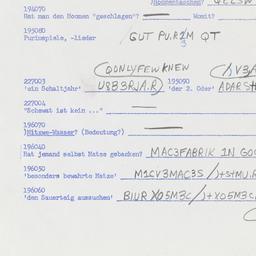 194070
Hat man den Hoomen "geschlagen"? Womit?
195080
Purimspiele, -lieder GUT PU.RIM QT
(QONLYFEWKNEW
227003 195090
'ein Schaltjahr' der '2. Oder'
227004
"Schewat ist kein ..."
196070
)Mitzwe-Wasser? (Bedeutung?)
196040
Hat jemand selbst Matze gebacken? MAC3FABRIK IN
196050
'besonders bewahrte Matze' M1CV3MAC3S /)+S+MU.R
196060
'den Sauerteig aussuchen' BIUR XO5M3C/)+XO5M3C